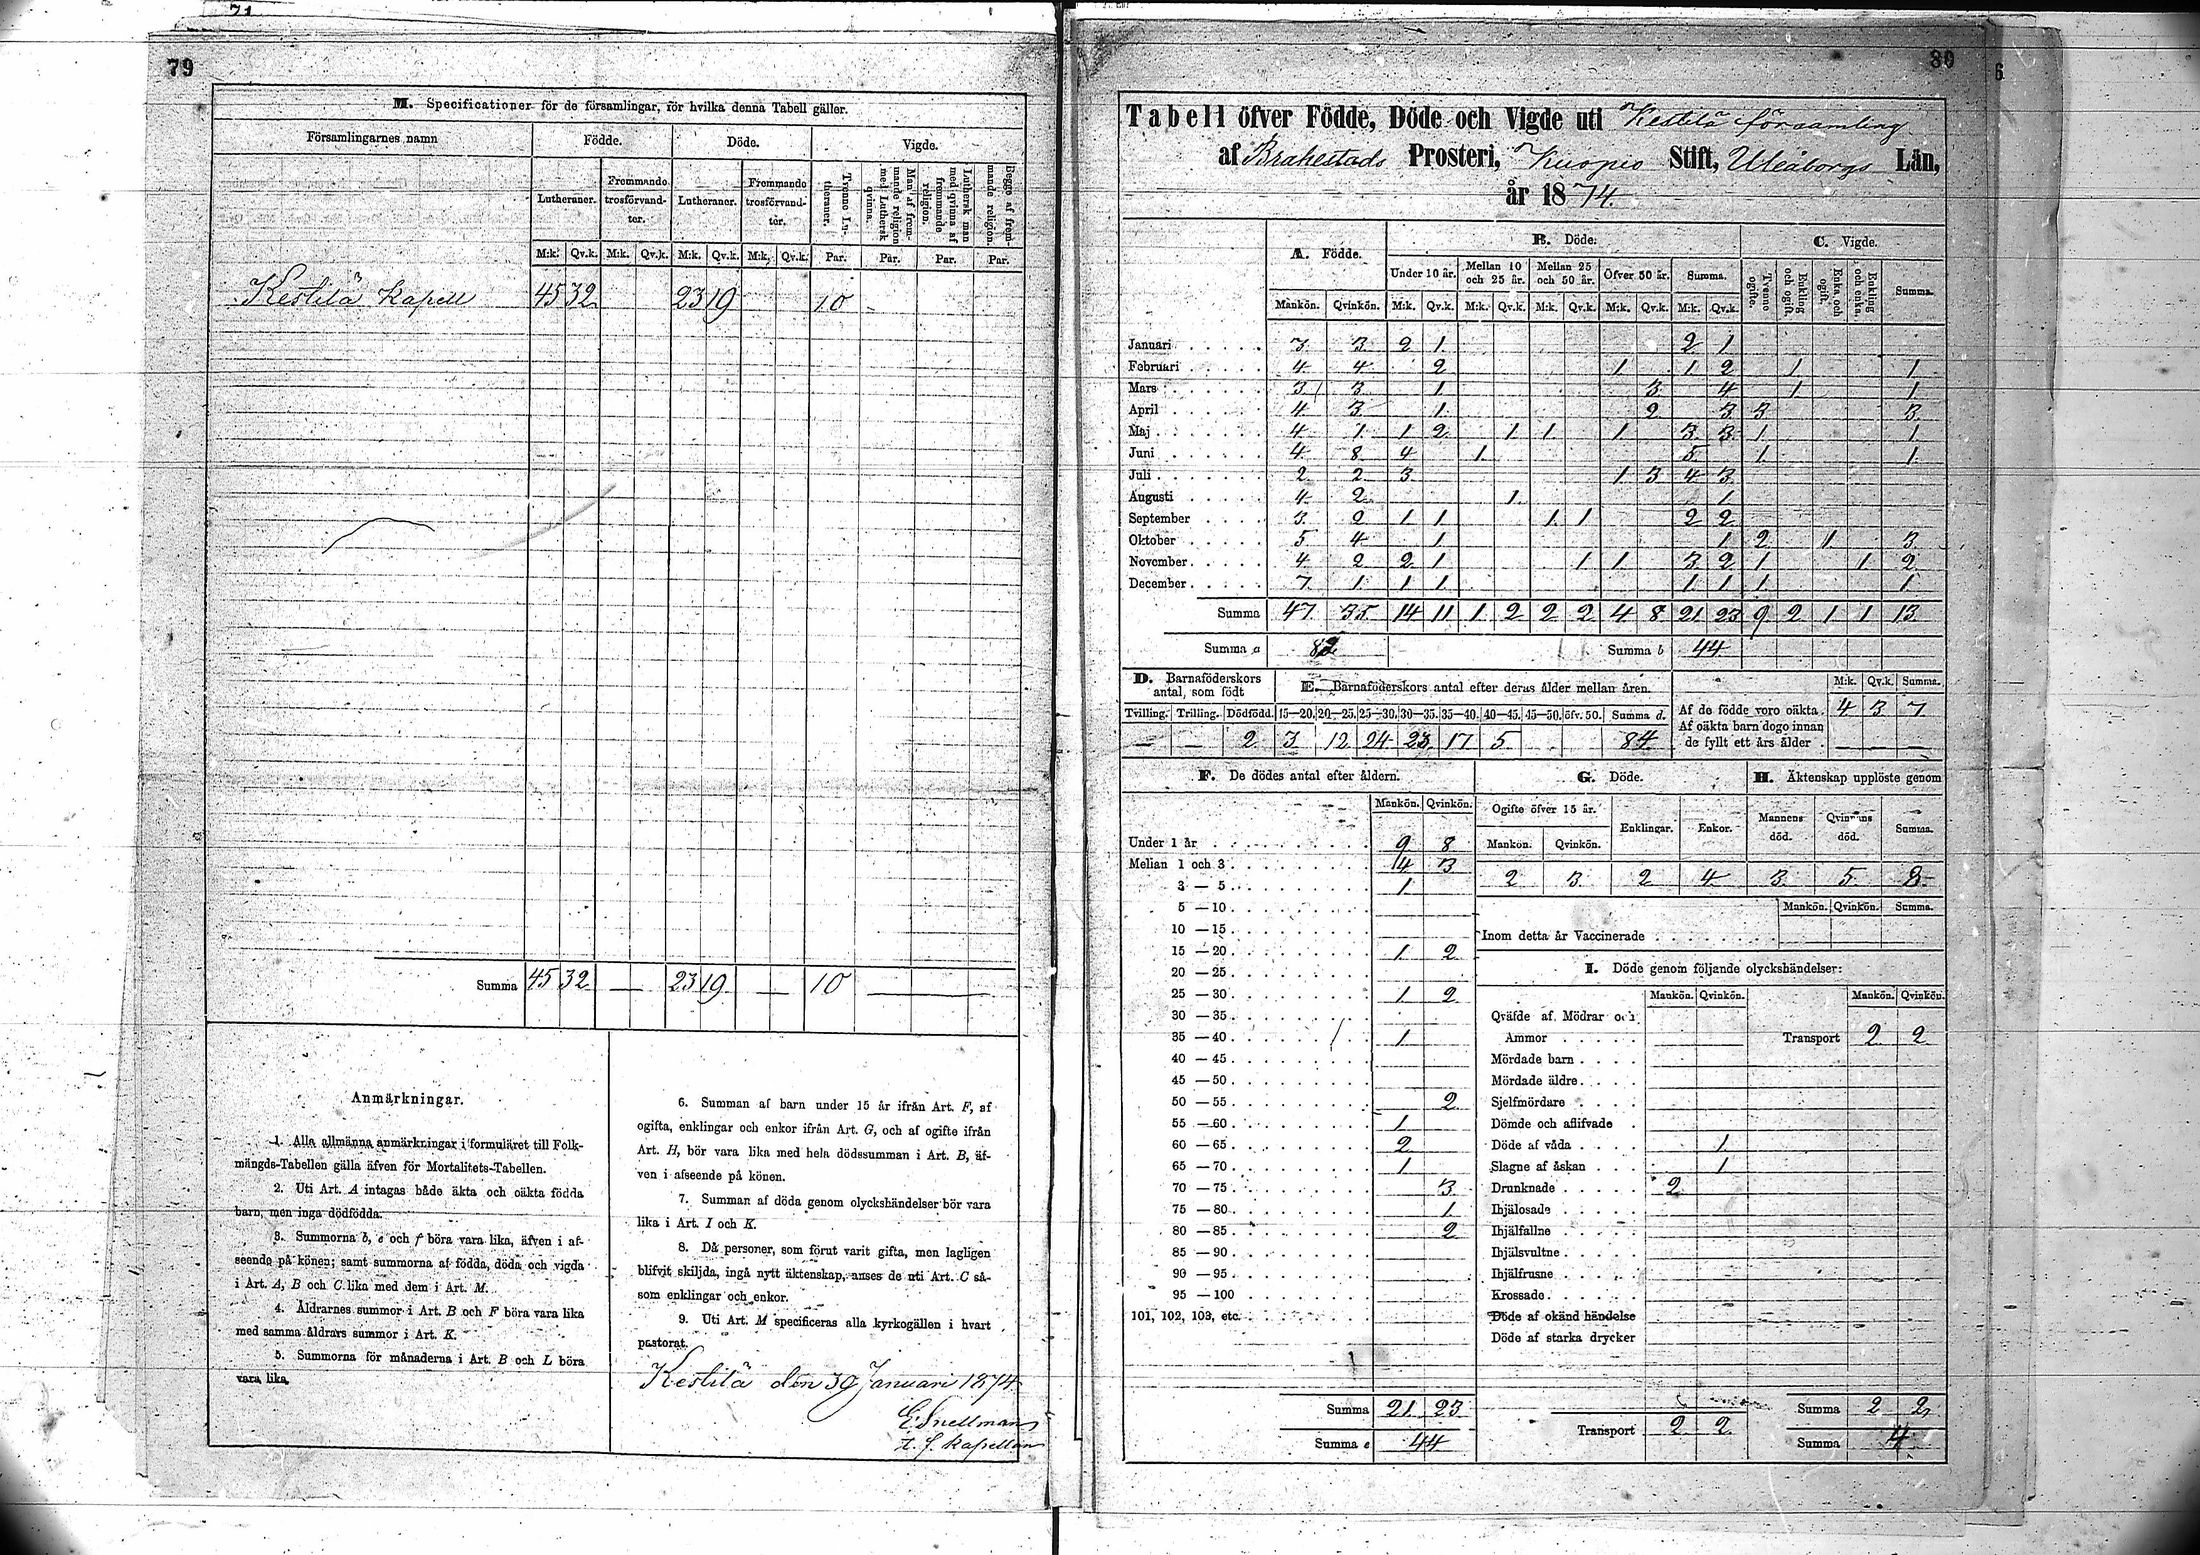 71
79
M. Specificationer för de församlingar, för hvilka denna Tabell gäller.
Församlingarnes namn Födde. Döde. Vigde.
Lutheraner. Frommande trosförvandter. Lutheraner. Frommande trosförvandter. Tvenne Lutheraner. Man af frommande religion med Luthersk qvinna. Luthersk man med qvinna af frommande religion. Begge af frommande religion
M:k. Qv.k. M:k. Qv.k. M:k. Qv.k. M:k. Qv.k. Par. Par. Par. Par.
Kestilä Kapell 45 32 23 19 10
Summa 45 32 — 23 19 — 10 —
Anmärkningar.
1. Alla allmänna anmärkningar i formuläret till Folk-
mängds-Tabellen gälla äfven för Mortalitets-Tabellen.
2. Uti Art. A intagas både äkta och oäkta födda
barn, men inga dödfödda.
3. Summorna b, e och f böra vara lika, äfven i af-
seende på könen; samt summorna af födda, döda och vigda
i Art. A, B och C lika med dem i Art. M.
4. Åldrarnes summor i Art. B och F böra vara lika
med samma åldrars summor i Art. K.
5. Summorna för månaderna i Art. B och L böra
vara lika.
6. Summan af barn under 15 år ifrån Art. F, af
ogifta, enklingar och enkor ifrån Art. G, och af ogifte ifrån
Art. H, bör vara lika med hela dödssumman i Art. B, äf-
ven i afseende på könen.
7. Summan af döda genom olyckshändelser bör vara
lika i Art. I och K.
8. Då personer, som förut varit gifta, men lagligen
blifvit skiljda, ingå nytt äktenskap, anses de uti Art. C så-
som enklingar och enkor.
9. Uti Art. M specificeras alla kyrkogällen i hvart
pastorat.
Kestilä den 30 Januari 1874
E Snellman
t. f. Kapellan
80
6
Tabell öfver Födde, Döde och Vigde uti Kestilä församling
af Brahestads Prosteri, Kuopio Stift, Uleåborgs Län,
år 1874.
A. Födde. B. Döde. C. Vigde.
Under 10 år. Mellan 10 och 25 år. Mellan 25 och 50 år. Öfver 50 år. Summa. Tvenne ogifte. Enkling och ogift. Enka och ogift. Enkling och enka. Summa.
Mankön. Qvinkön. M:k. Qv.k. M:k. Qv.k. M:k. Qv.k. M:k. Qv.k. M:k. Qv.k.
Januari 3 3 2 1 2 1
Februari 4 4 2 1 1 2 1 1
Mars 3 3 1 3 4 1 1
April 4 3 1 2 3 3 3
Maj 4 1 1 2 1 1 1 3 3 1 1
Juni 4 8 4 1 5 1 1
Juli 2 2 3 1 3 4 3
Augusti 4 2 1 1
September 3 2 1 1 1 1 2 2
Oktober 5 4 1 1 2 1 3
November 4 2 2 1 1 1 3 2 1 1 2
December 7 1 1 1 1 1 1 1
Summa 47 35 14 11 1 2 2 2 4 8 21 23 9 2 1 1 13
Summa a 82 Summa b 44
D. Barnaföderskors antal, som födt E. Barnaföderskors antal efter deras ålder mellan åren. M:k. Qv.k. Summa.
Tvilling. Trilling. Dödfödd. 15—20. 20—25. 25—30. 30—35. 35—40. 40—45. 45—50. öfv. 50. Summa d.
— — 2 3 12 24 23 17 5 84
Af de födde voro oäkta 4 3 7
Af oäkta barn dogo innan
de fyllt ett års ålder — — —
F. De dödes antal efter åldern.
Mankön. Qvinkön.
Under 1 år 9 8
Mellan 1 och 3 4 3
3 — 5 1
5 — 10
10 — 15
15 — 20 1 2
20 — 25
25 — 30 1 2
30 — 35
35 — 40 1
40 — 45
45 — 50
50 — 55 2
55 — 60 1
60 — 65 2
65 — 70 1
70 — 75 3
75 — 80 1
80 — 85 2
85 — 90
90 — 95
95 — 100
101, 102, 103, etc.
Summa 21 23
Summa e 44
G. Döde. H. Äktenskap upplöste genom
Ogifte öfver 15 år. Enklingar. Enkor. Mannens död. Qvinnans död. Summa.
Mankön. Qvinkön.
2 3 2 4 3 5 8
Mankön. Qvinkön. Summa.
Inom detta år Vaccinerade
I. Döde genom följande olyckshändelser:
Mankön. Qvinkön. Mankön. Qvinkön.
Qväfde af Mödrar och
Ammor Transport 2 2
Mördade barn
Mördade äldre
Sjelfmördare
Dömde och aflifvade
Döde af våda 1
Slagne af åskan 1
Drunknade 2
Ihjälosade
Ihjälfallne
Ihjälsvultne
Ihjälfrusne
Krossade
Döde af okänd händelse
Döde af starka drycker
Transport 2 2
Summa 2 2
Summa 4